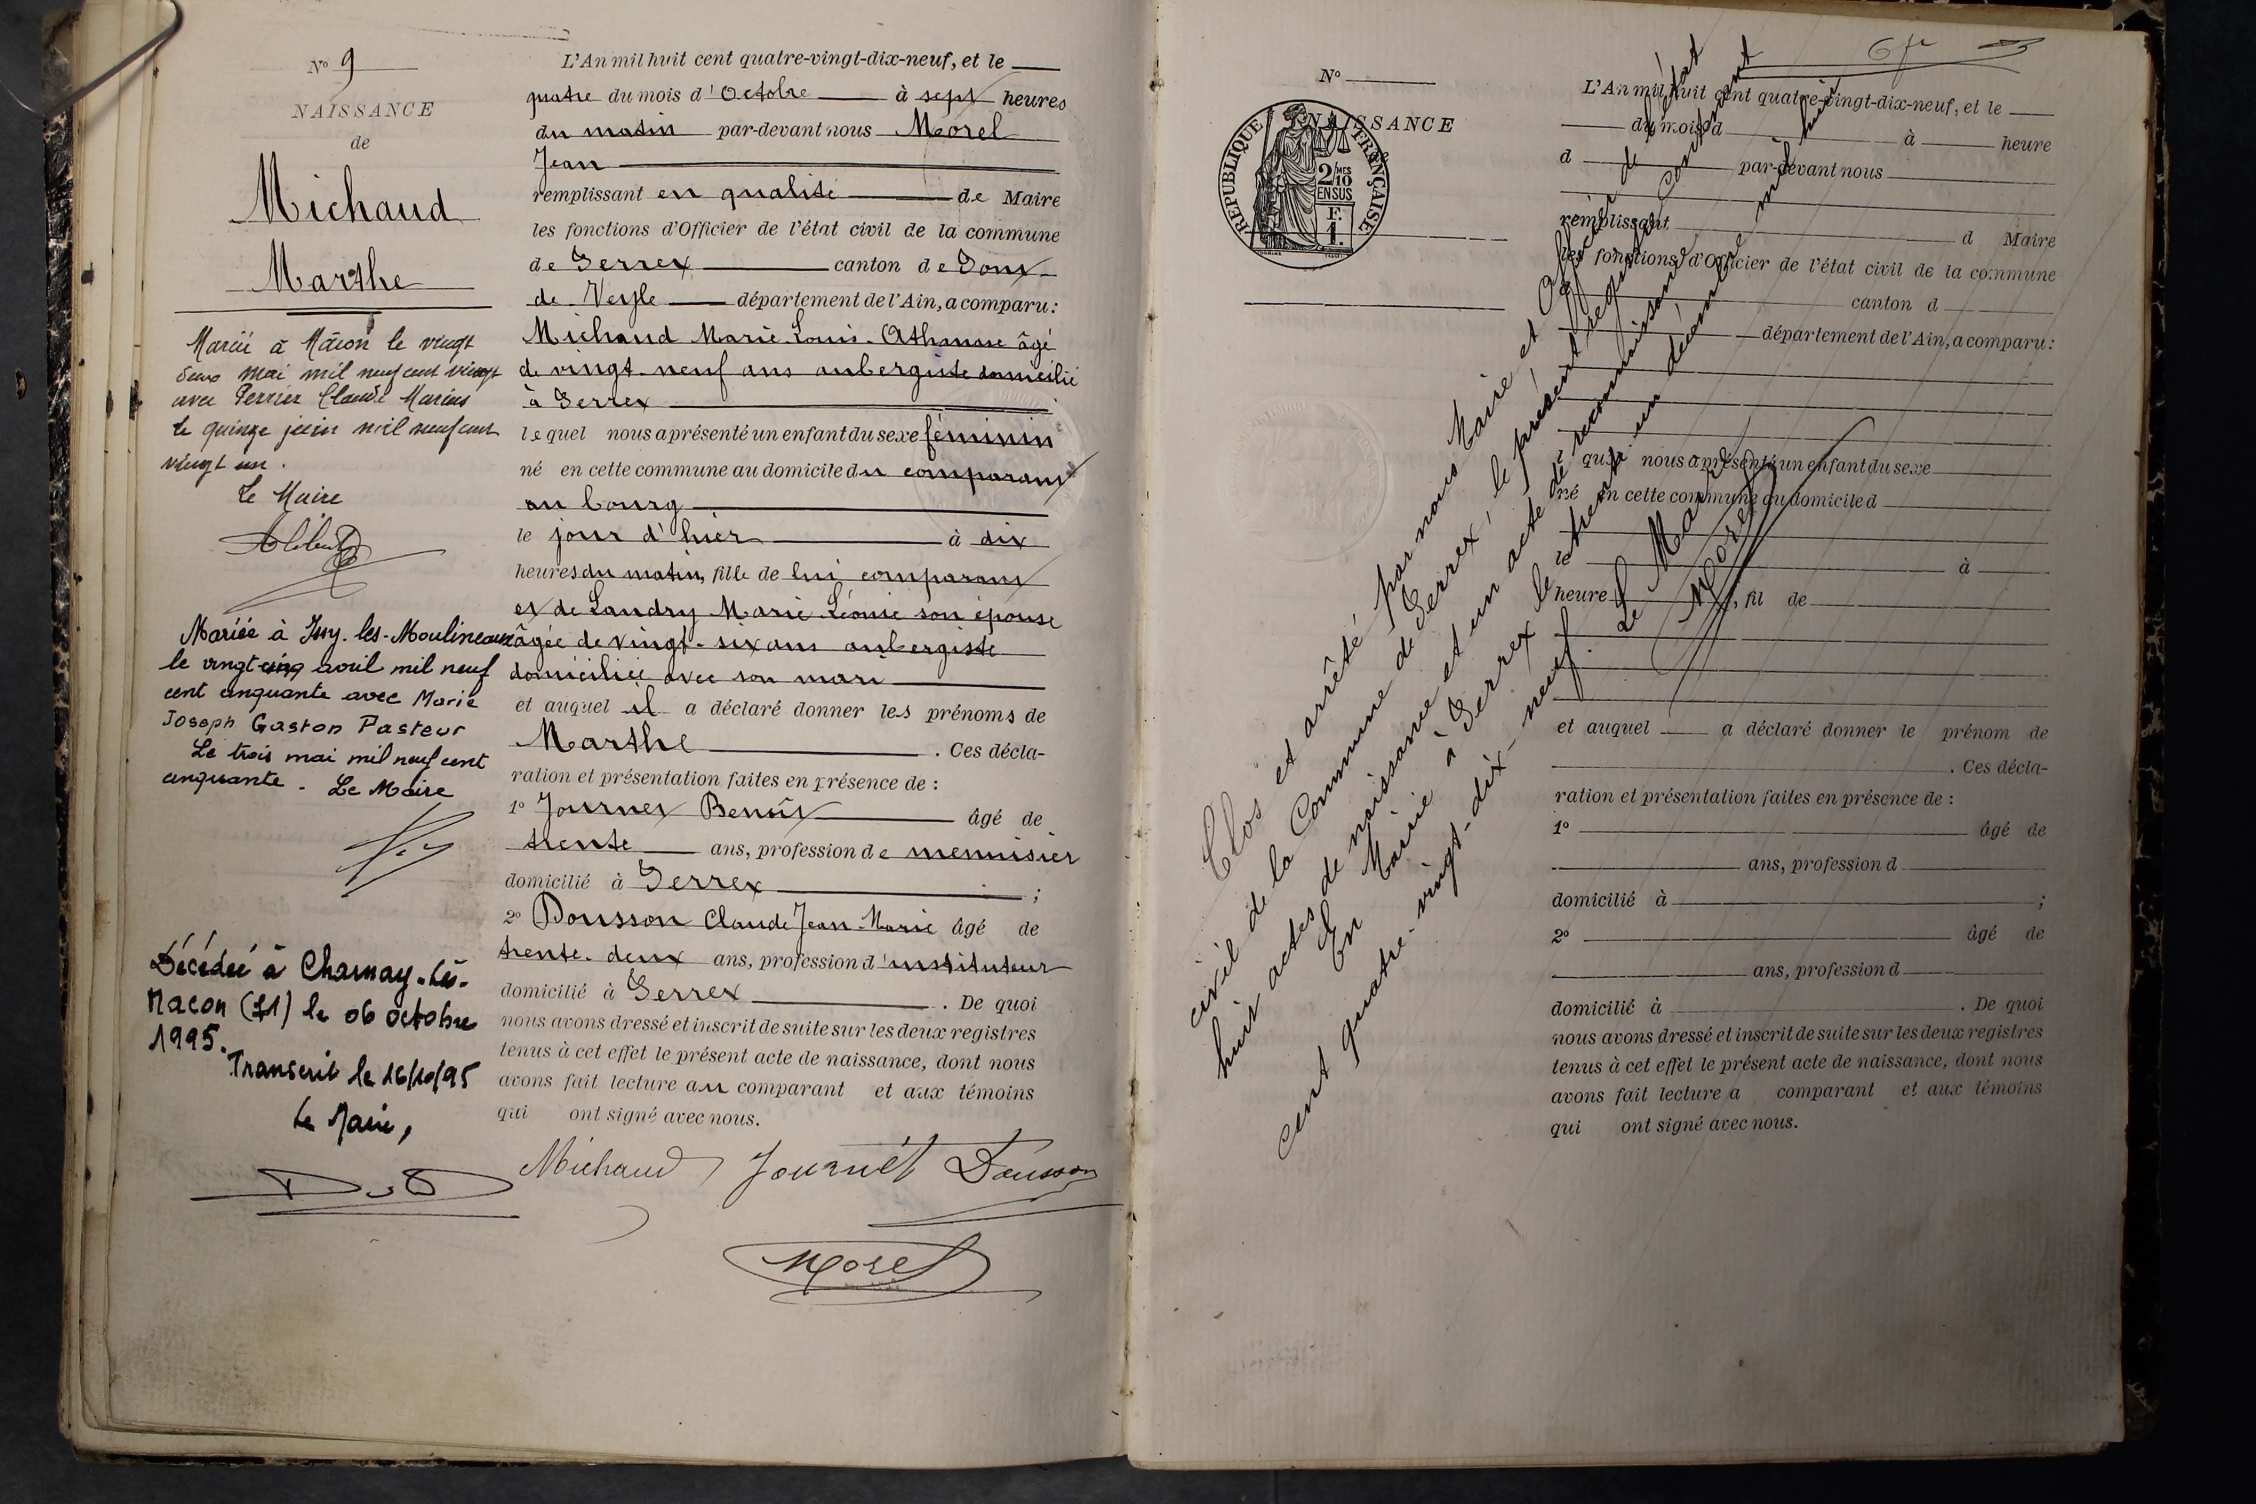 N° 9
NAISSANCE
de
Michaud
Marthe
Mariée à Mâcon le vingt
deux mai mil neuf cent vingt
avec Perrier Claude Marius
le quinze juin mil neuf cent
vingt un.
Le Maire
Mariée à Issy-les-Moulineaux
le vingt-cinq avril mil neuf
cent cinquante avec Marie
Joseph Gaston Pasteur
Le trois mai mil neuf cent
cinquante. Le Maire
Décédée à Charnay-Lès-
Macon (71) le 06 octobre
1995.
Transcrit le 16/10/95
Le Maire,
L'An mil huit cent quatre-vingt-dix-neuf, et le
quatre du mois d'Octobre à sept heures
du matin par-devant nous Morel
Jean
remplissant en qualité de Maire
les fonctions d'Officier de l'état civil de la commune
de Perrex canton de Pont
de Veyle département de l'Ain, a comparu:
Michaud Marie Louis Athanase âgé
de vingt-neuf ans aubergiste domicilié
à Perrex
lequel nous a présenté un enfant du sexe féminin
né en cette commune au domicile du comparant
au bourg
le jour d'hier à dix
heures du matin, fille de lui comparant
et de Landry Marie Léonie son épouse
âgée de vingt-six ans aubergiste
domiciliée avec son mari
et auquel il a déclaré donner les prénoms de
Marthe . Ces décla-
ration et présentation faites en présence de :
1° Journet Benoît âgé de
trente ans, profession de menuisier
domicilié à Perrex ;
2° Dousson Claude Jean-Marie âgé de
trente-deux ans, profession d'instituteur
domicilié à Perrex . De quoi
nous avons dressé et inscrit de suite sur les deux registres
tenus à cet effet le présent acte de naissance, dont nous
avons fait lecture au comparant et aux témoins
qui ont signé avec nous.
Michaud Journet Dousson
Morel
N°
NAISSANCE
REPUBLIQUE FRANÇAISE
2/10
EN SUS
F.
1.
L'An mil huit cent quatre-vingt-dix-neuf, et le
du mois d à heure
d par-devant nous
remplissant d Maire
les fonctions d'Officier de l'état civil de la commune
d canton d
département de l'Ain, a comparu:
l quel nous a présenté un enfant du sexe
né en cette commune au domicile d
le à
heure , fil de
et auquel a déclaré donner le prénom de
. Ces décla-
ration et présentation faites en présence de :
1° âgé de
ans, profession d
domicilié à ;
2° âgé de
ans, profession d
domicilié à . De quoi
nous avons dressé et inscrit de suite sur les deux registres
tenus à cet effet le présent acte de naissance, dont nous
avons fait lecture a comparant et aux témoins
qui ont signé avec nous.
Clos et arrêté par nous Maire et Officier de l'état
civil de la Commune de Perrex, le présent registre contenant
huit actes de naissance et un acte de reconnaissance
En Mairie à Perrex le trente un décembre mil huit
cent quatre-vingt-dix-neuf. Le Maire
Morel